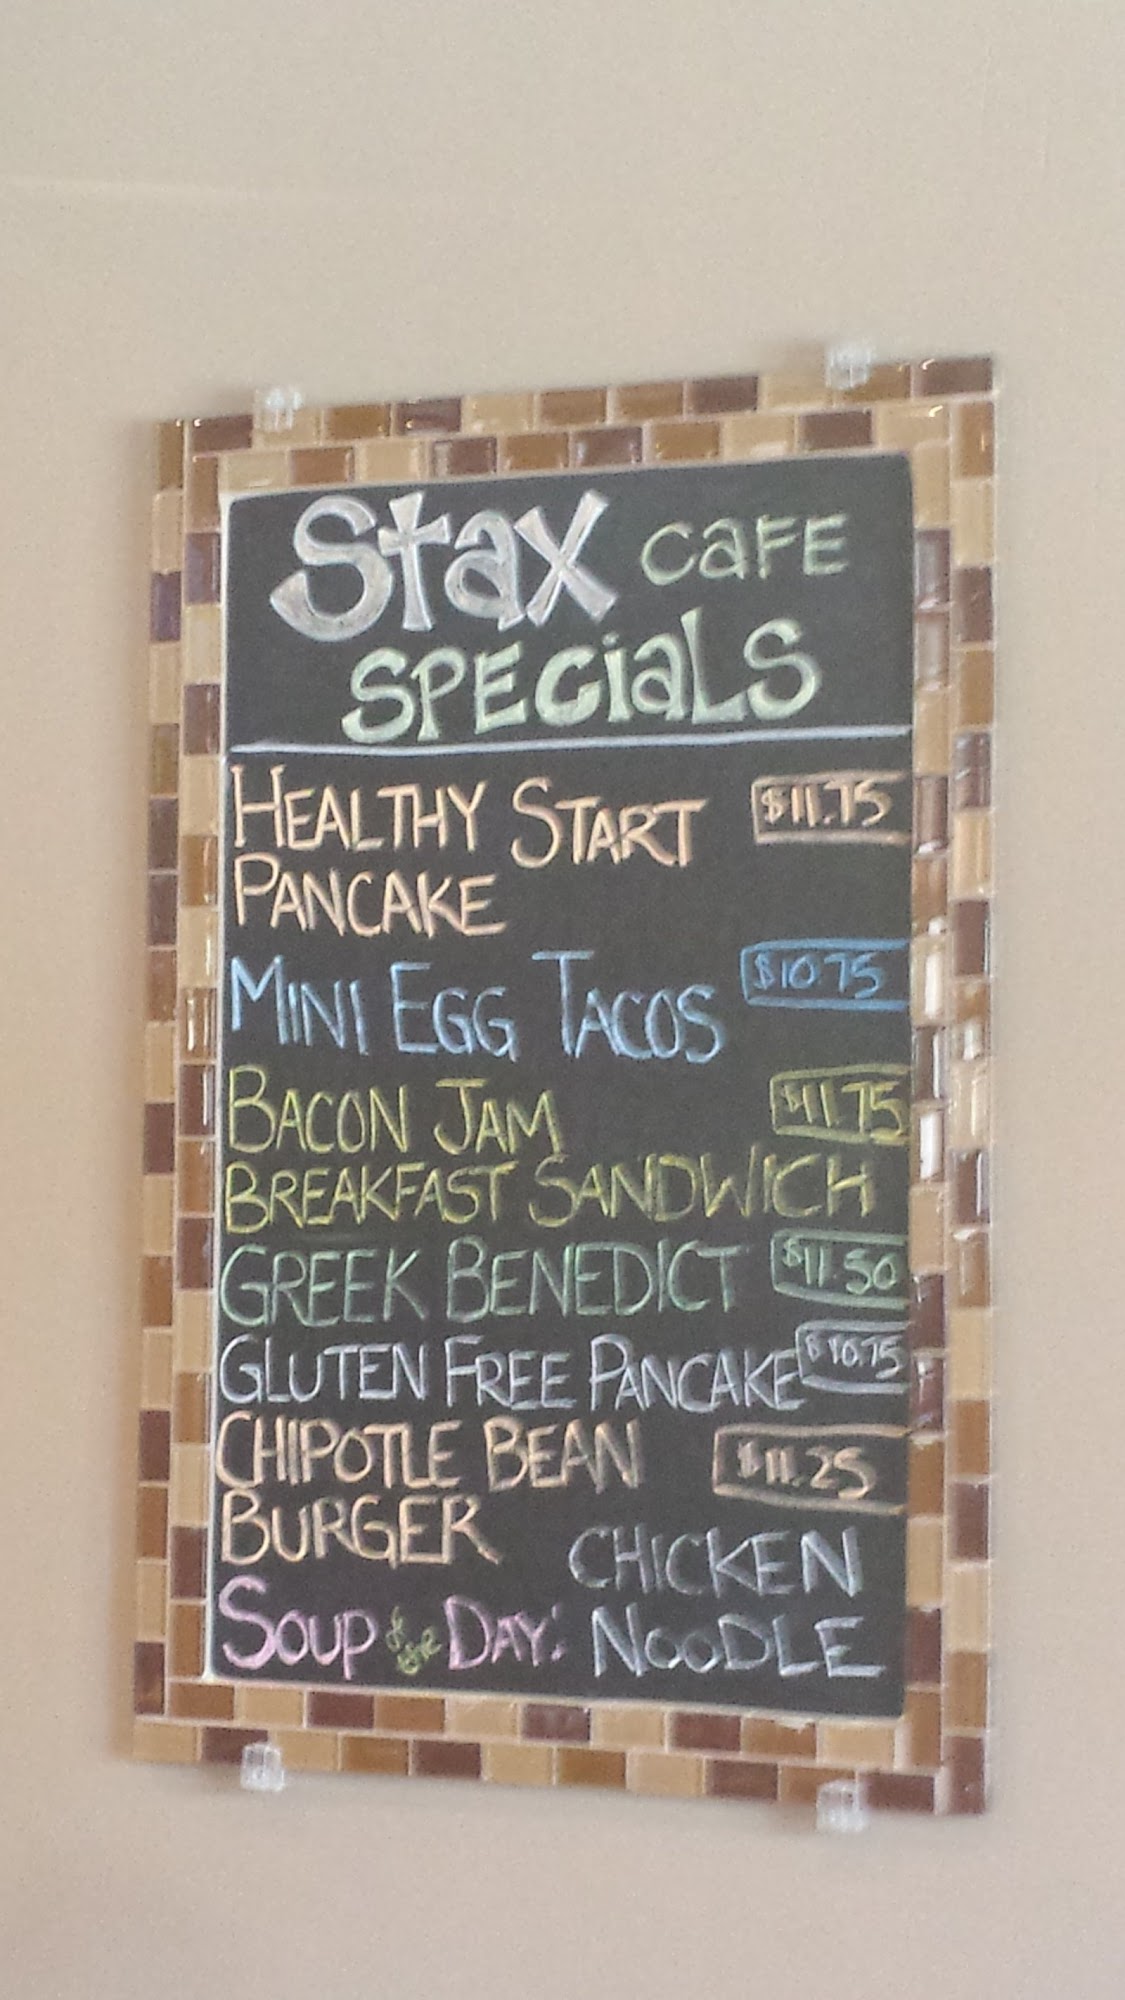 Stax CaFE
SPECiaLS
HEALTHY START $11.75
PANCAKE
MINI EGG TACOS $10.75
BACON JAM $11.75
BREAKFAST SANDWICH
GREEK BENEDICT $11.50
GLUTEN FREE PANCAKE $10.75
CHIPOTLE BEAN $11.25
BURGER
SOUP of the DAY: CHICKEN
NOODLE